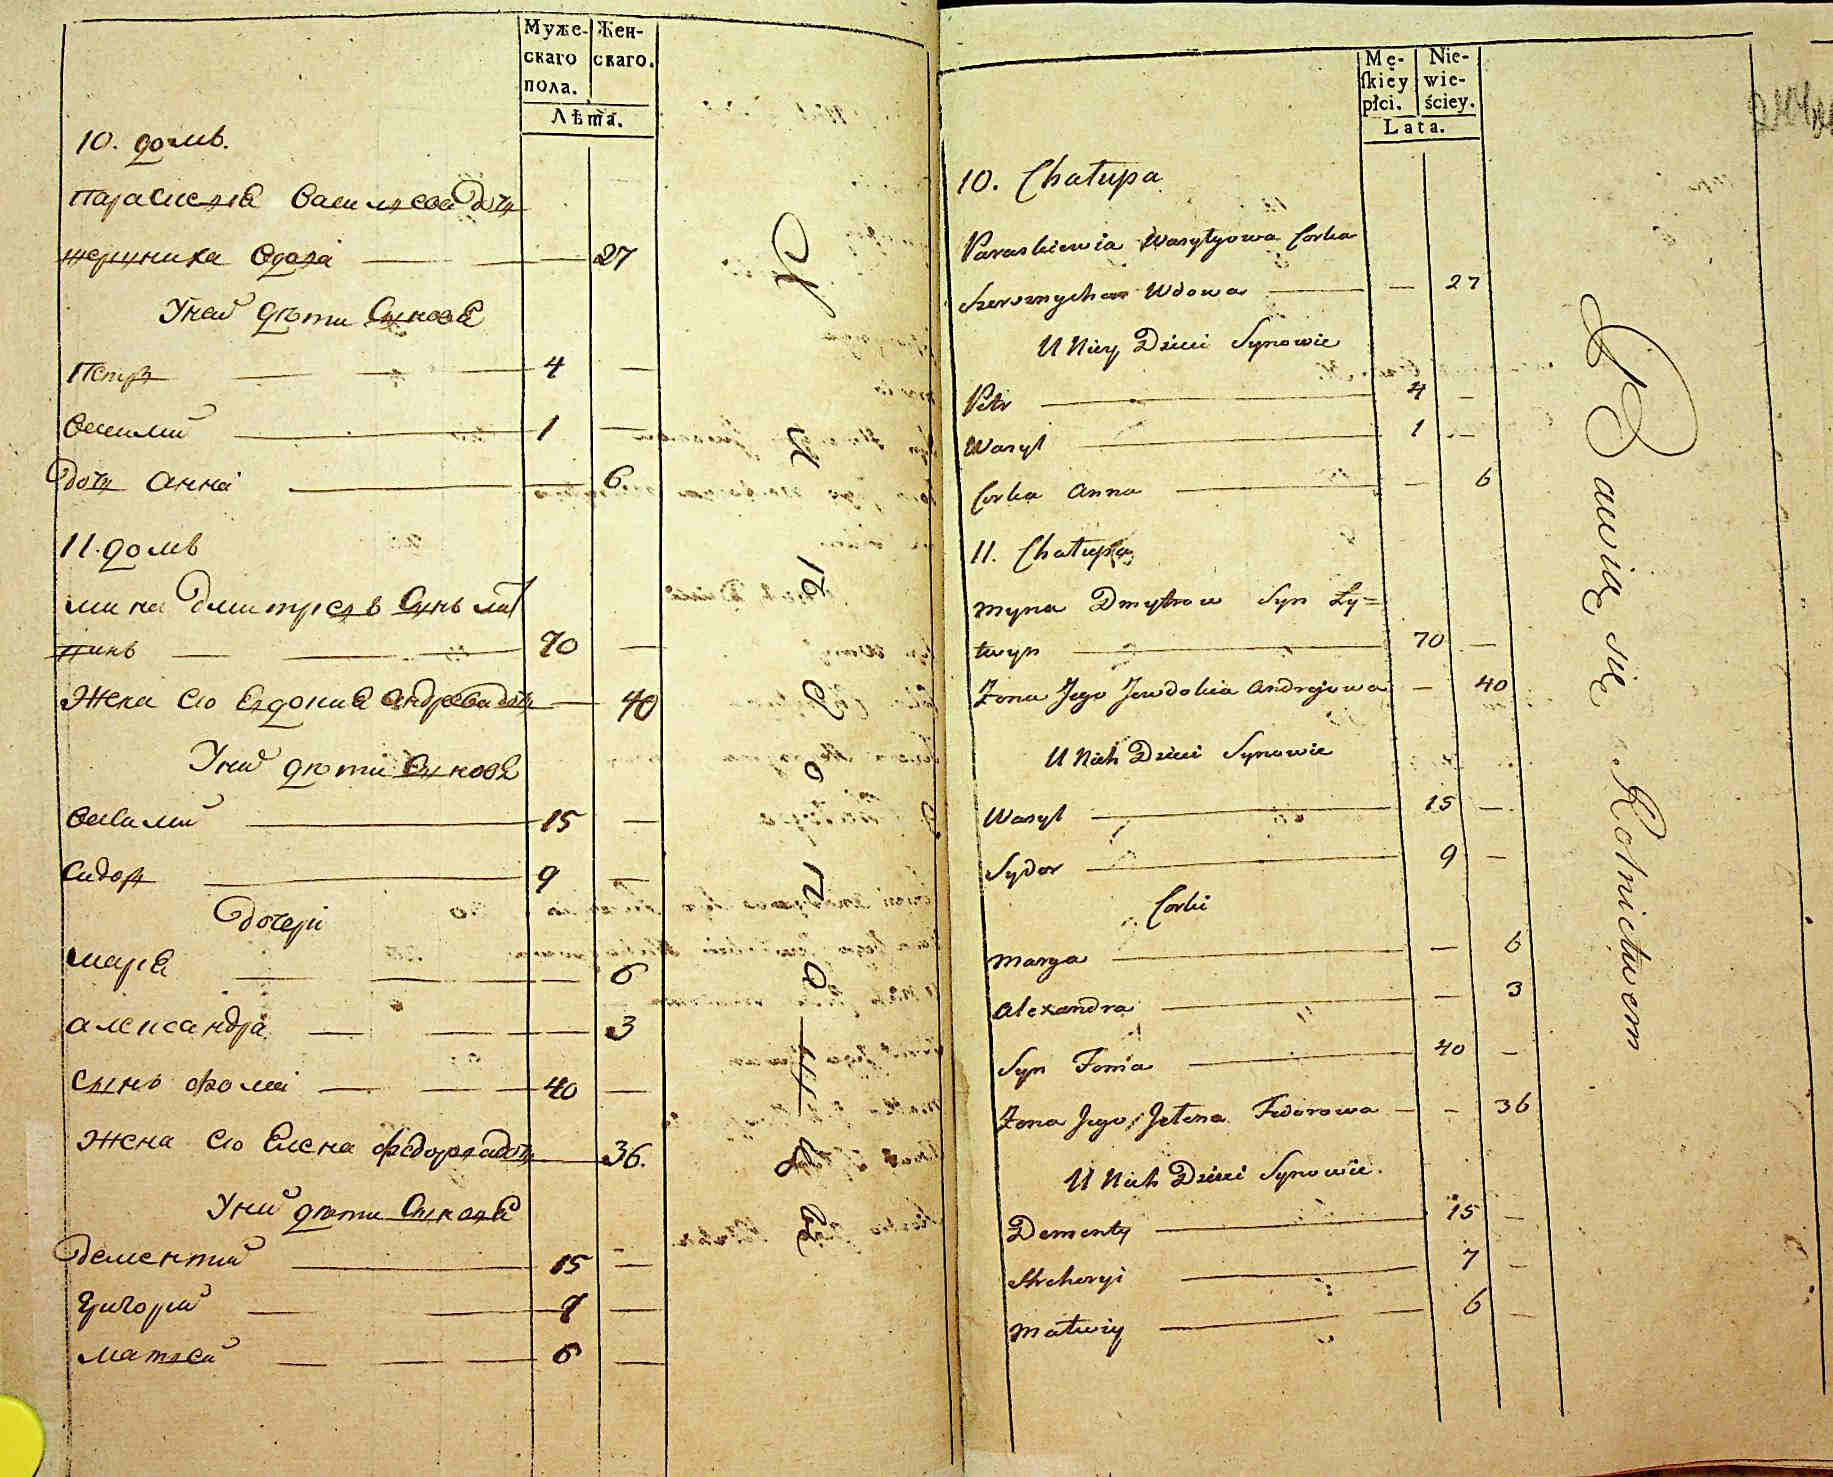 Муже- Жен-
скаго скаго.
пола.
Лѣта.
10. домъ.
Параскевіа Василіева дочь
вдова — 27
У ней дѣти Синове
Петръ — 4 —
Василий — 1 —
дочь Анна — 6.
11. домъ
Мина Дмитріевъ Синъ Лит
винъ — 70 —
Жена его Евдокиа Андреева дочь — 40
У них дѣти Синове
Василий — 15 —
Сидоръ — 9 —
дочери
Мариа — 6
Александра — 3
Синъ Фома — 40 —
Жена его Елена Федорова дочь — 36.
У них дѣти Синове
Дементий — 15 —
Григорий — 7 —
Матвей — 6 —
Mę- Nie-
skiéy wie-
płci. ściey.
Lata.
10. Chałupa
Paraskiewia Wasylyowa Corka
Wdowa — — 27
U Niey Dzieci Synowie
Petr — 4 —
Wasyl — 1 —
Corka Anna — — 6
11. Chałupa
Myna Dmytrow Syn Ly=
twyn — 70 —
Żona Jego Jewdokia Andrejowa — 40
U Nich Dzieci Synowie
Wasyl — 15 —
Sydor — 9 —
Corki
Marya — — 6
Alexandra — — 3
Syn Foma — 40 —
Żona Jego Jełena Fedorowa — — 36
U Nich Dzieci Synowie
Dementy — 15 —
Hrehoryi — 7 —
Matwiy — 6 —
Bawią się Rolnictwem